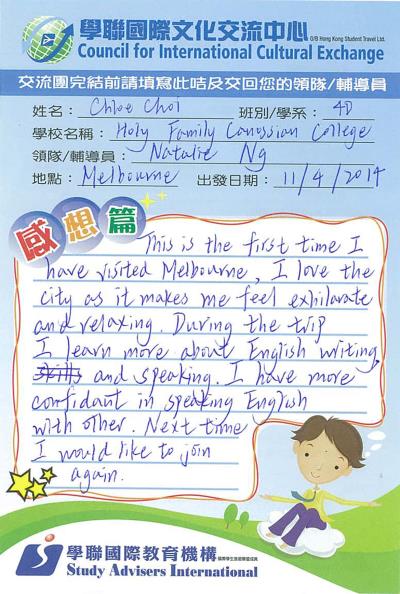 學聯國際文化交流中心 O/B Hong Kong Student Travel Ltd.
Council for International Cultural Exchange
交流團完結前請填寫此咭及交回您的領隊/輔導員
姓名： Chloe Choi 班別/學系： 4D
學校名稱： Holy Family Canossian College
領隊/輔導員： Natalie Ng
地點： Melbourne 出發日期： 11/4/2014
感想篇
This is the first time I
have visited Melbourne, I love the
city as it makes me feel exhilarate
and relaxing. During the trip
I learn more about English writing
skills and speaking. I have more
confidant in speaking English
with other. Next time
I would like to join
again.
學聯國際教育機構
Study Advisers International